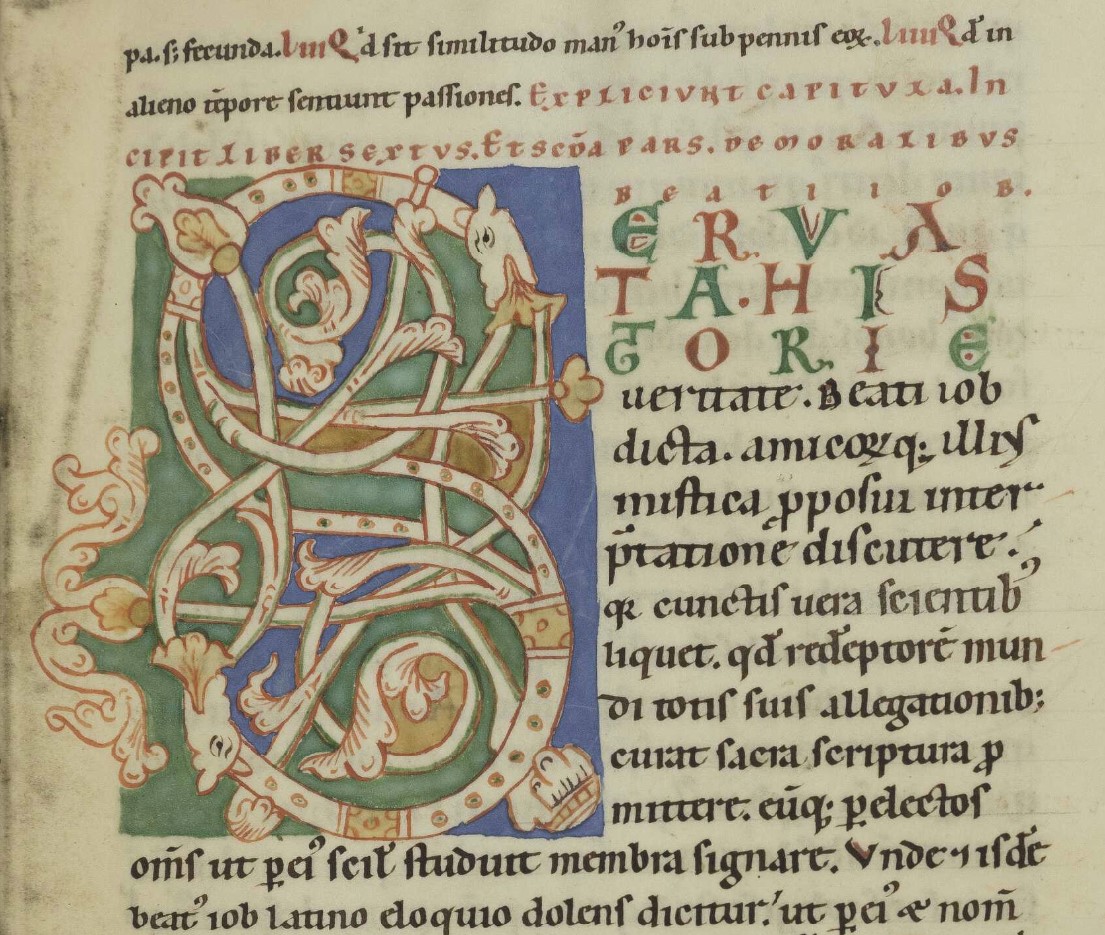 pa. s; fecunda. LIIIQ'd sit similitudo man' hoīs sub pennis eoꝝ. LIIIIQđ in
alieno tēpore sentiunt passiones. EXPLICIUNT CAPITULA. IN
CIPIT LIBER SEXTVS. ET SCĐA PARS. DE MORALIBVS
BEATI IOB.
SERVA
TA. HIS
TORIE
ueritate. Beati iob
dicta. amicoꝝq; illiꝰ
mistica ꝓposui inter
p̄tatione discutere.
qꝛ cunctis uera scientibꝰ
liquet. qđ redēptorē mun
di totis suis allegationib;
curat sacra scriptura ꝓ
mittere. eūq; ꝑ electos
om̄s ut ꝑ ei' studuit membra signare. Vnde ⁊ isdē
beat' iob latino eloquio dolens dicitur. ut ꝑ ei' & nom̄